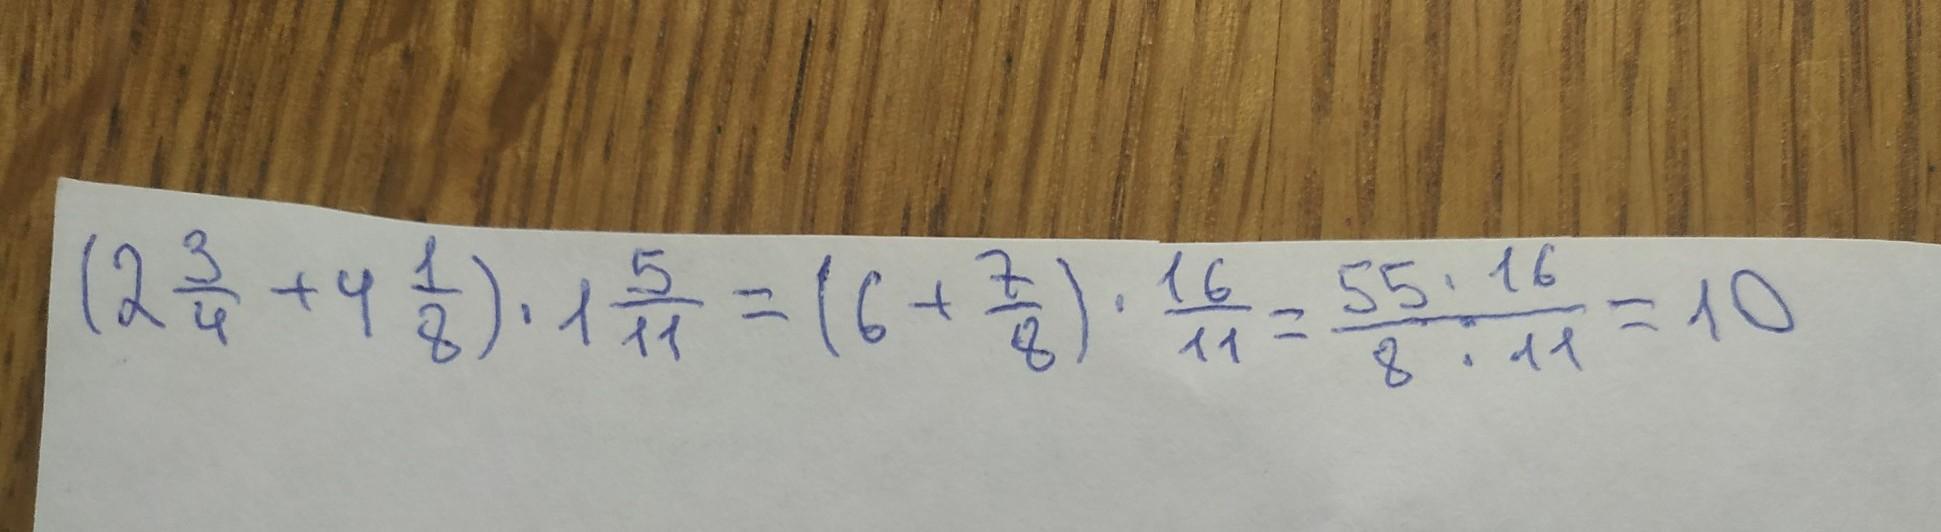 (2 3/4 + 4 1/8) · 1 5/11 = (6 + 7/8) · 16/11 = 55 · 16 / 8 · 11 = 10